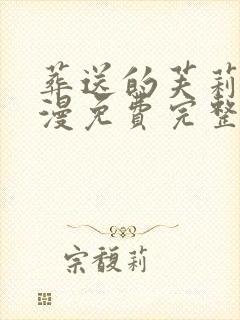 葬送的芙莉
漫免費完整
宗馥莉